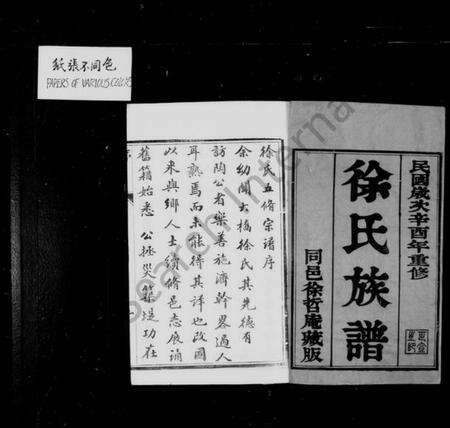 紙張不同色
PAPERS OF VARIOUS COLORS
民國歲次辛酉年重修
徐氏族譜
同邑徐哲庵藏版
徐氏五修宗譜序
余幼聞大橋徐氏其先德有
訪陶公者樂善施濟幹畧過人
耳熟焉而未能得其詳也改國
以來與鄉人士續修邑志展誦
舊籍始悉 公拯災築堤功在